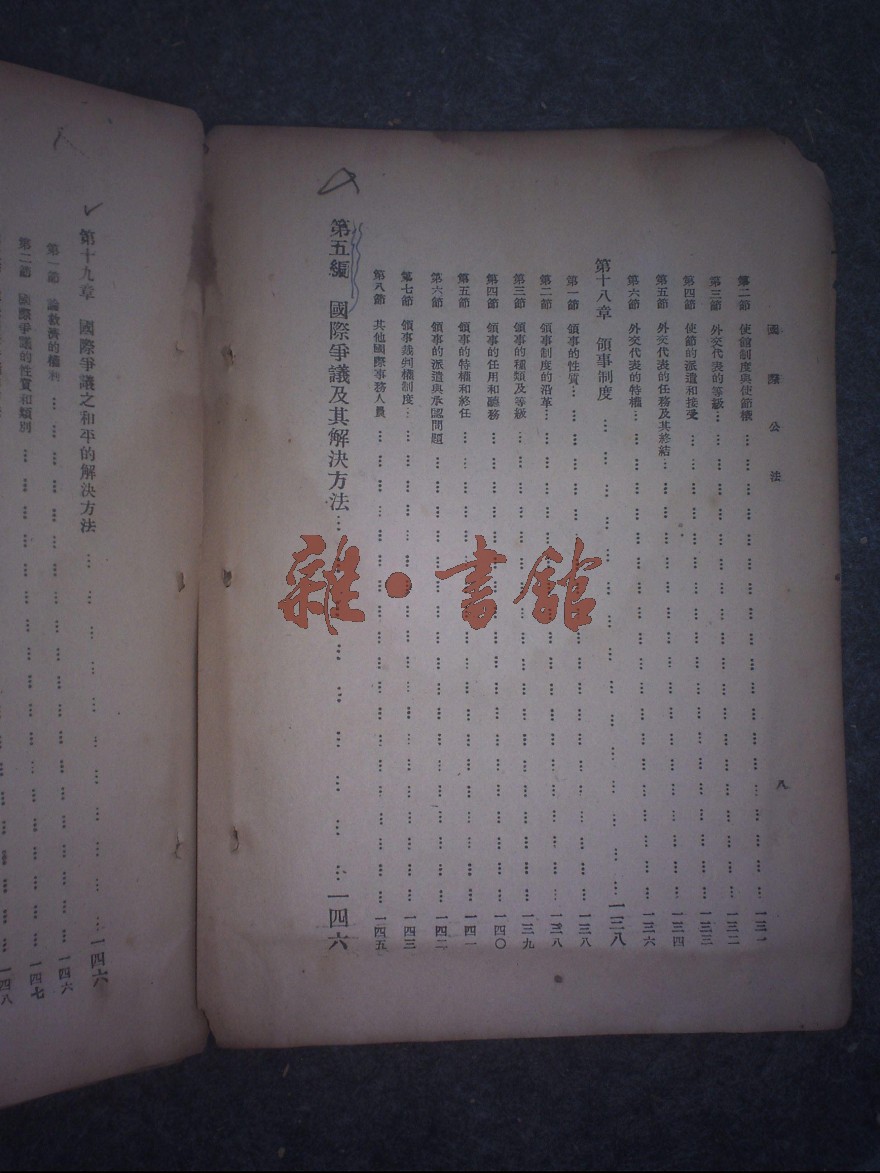 國際公法
八
第二節 使館制度與使節權 … 一三一
第三節 外交代表的等級 … 一三二
第四節 使節的派遣和接受 … 一三三
第五節 外交代表的任務及其終結 … 一三四
第六節 外交代表的特權 … 一三六
第十八章 領事制度 … 一三八
第一節 領事的性質 … 一三八
第二節 領事制度的沿革 … 一三八
第三節 領事的種類及等級 … 一三九
第四節 領事的任用和職務 … 一四〇
第五節 領事的特權和終任 … 一四一
第六節 領事的派遣與承認問題 … 一四二
第七節 領事裁判權制度 … 一四三
第八節 其他國際事務人員 … 一四五
第五編 國際爭議及其解決方法 … 一四六
第十九章 國際爭議之和平的解決方法 … 一四六
第一節 論救濟的權利 … 一四六
第二節 國際爭議的性質和類別 … 一四七
一四八
雜·書館